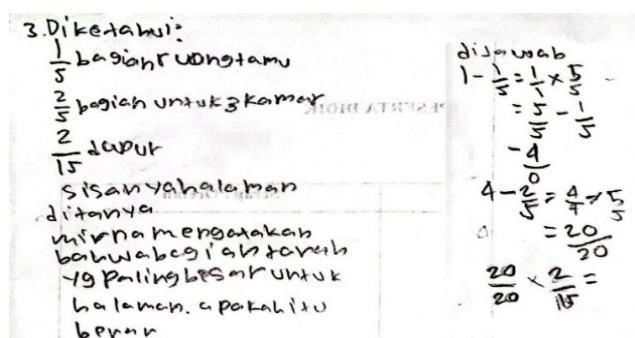 3. Diketahui:
1/5 bagian ruangtamu
2/5 bagian untuk 3 kamar
2/15 dapur
sisanyahalaman
ditanya
mirna mengatakan
bahwabagian tanah
yg paling besar untuk
halaman. apakah itu
benar
dijawab
1 - 1/5 = 1/1 × 5/5
= 5/5 - 1/5
- 4/0
4 - 2/5 = 4/4 × 5/5
= 20/20
20/20 × 2/15 =
PESERTA DIDIK